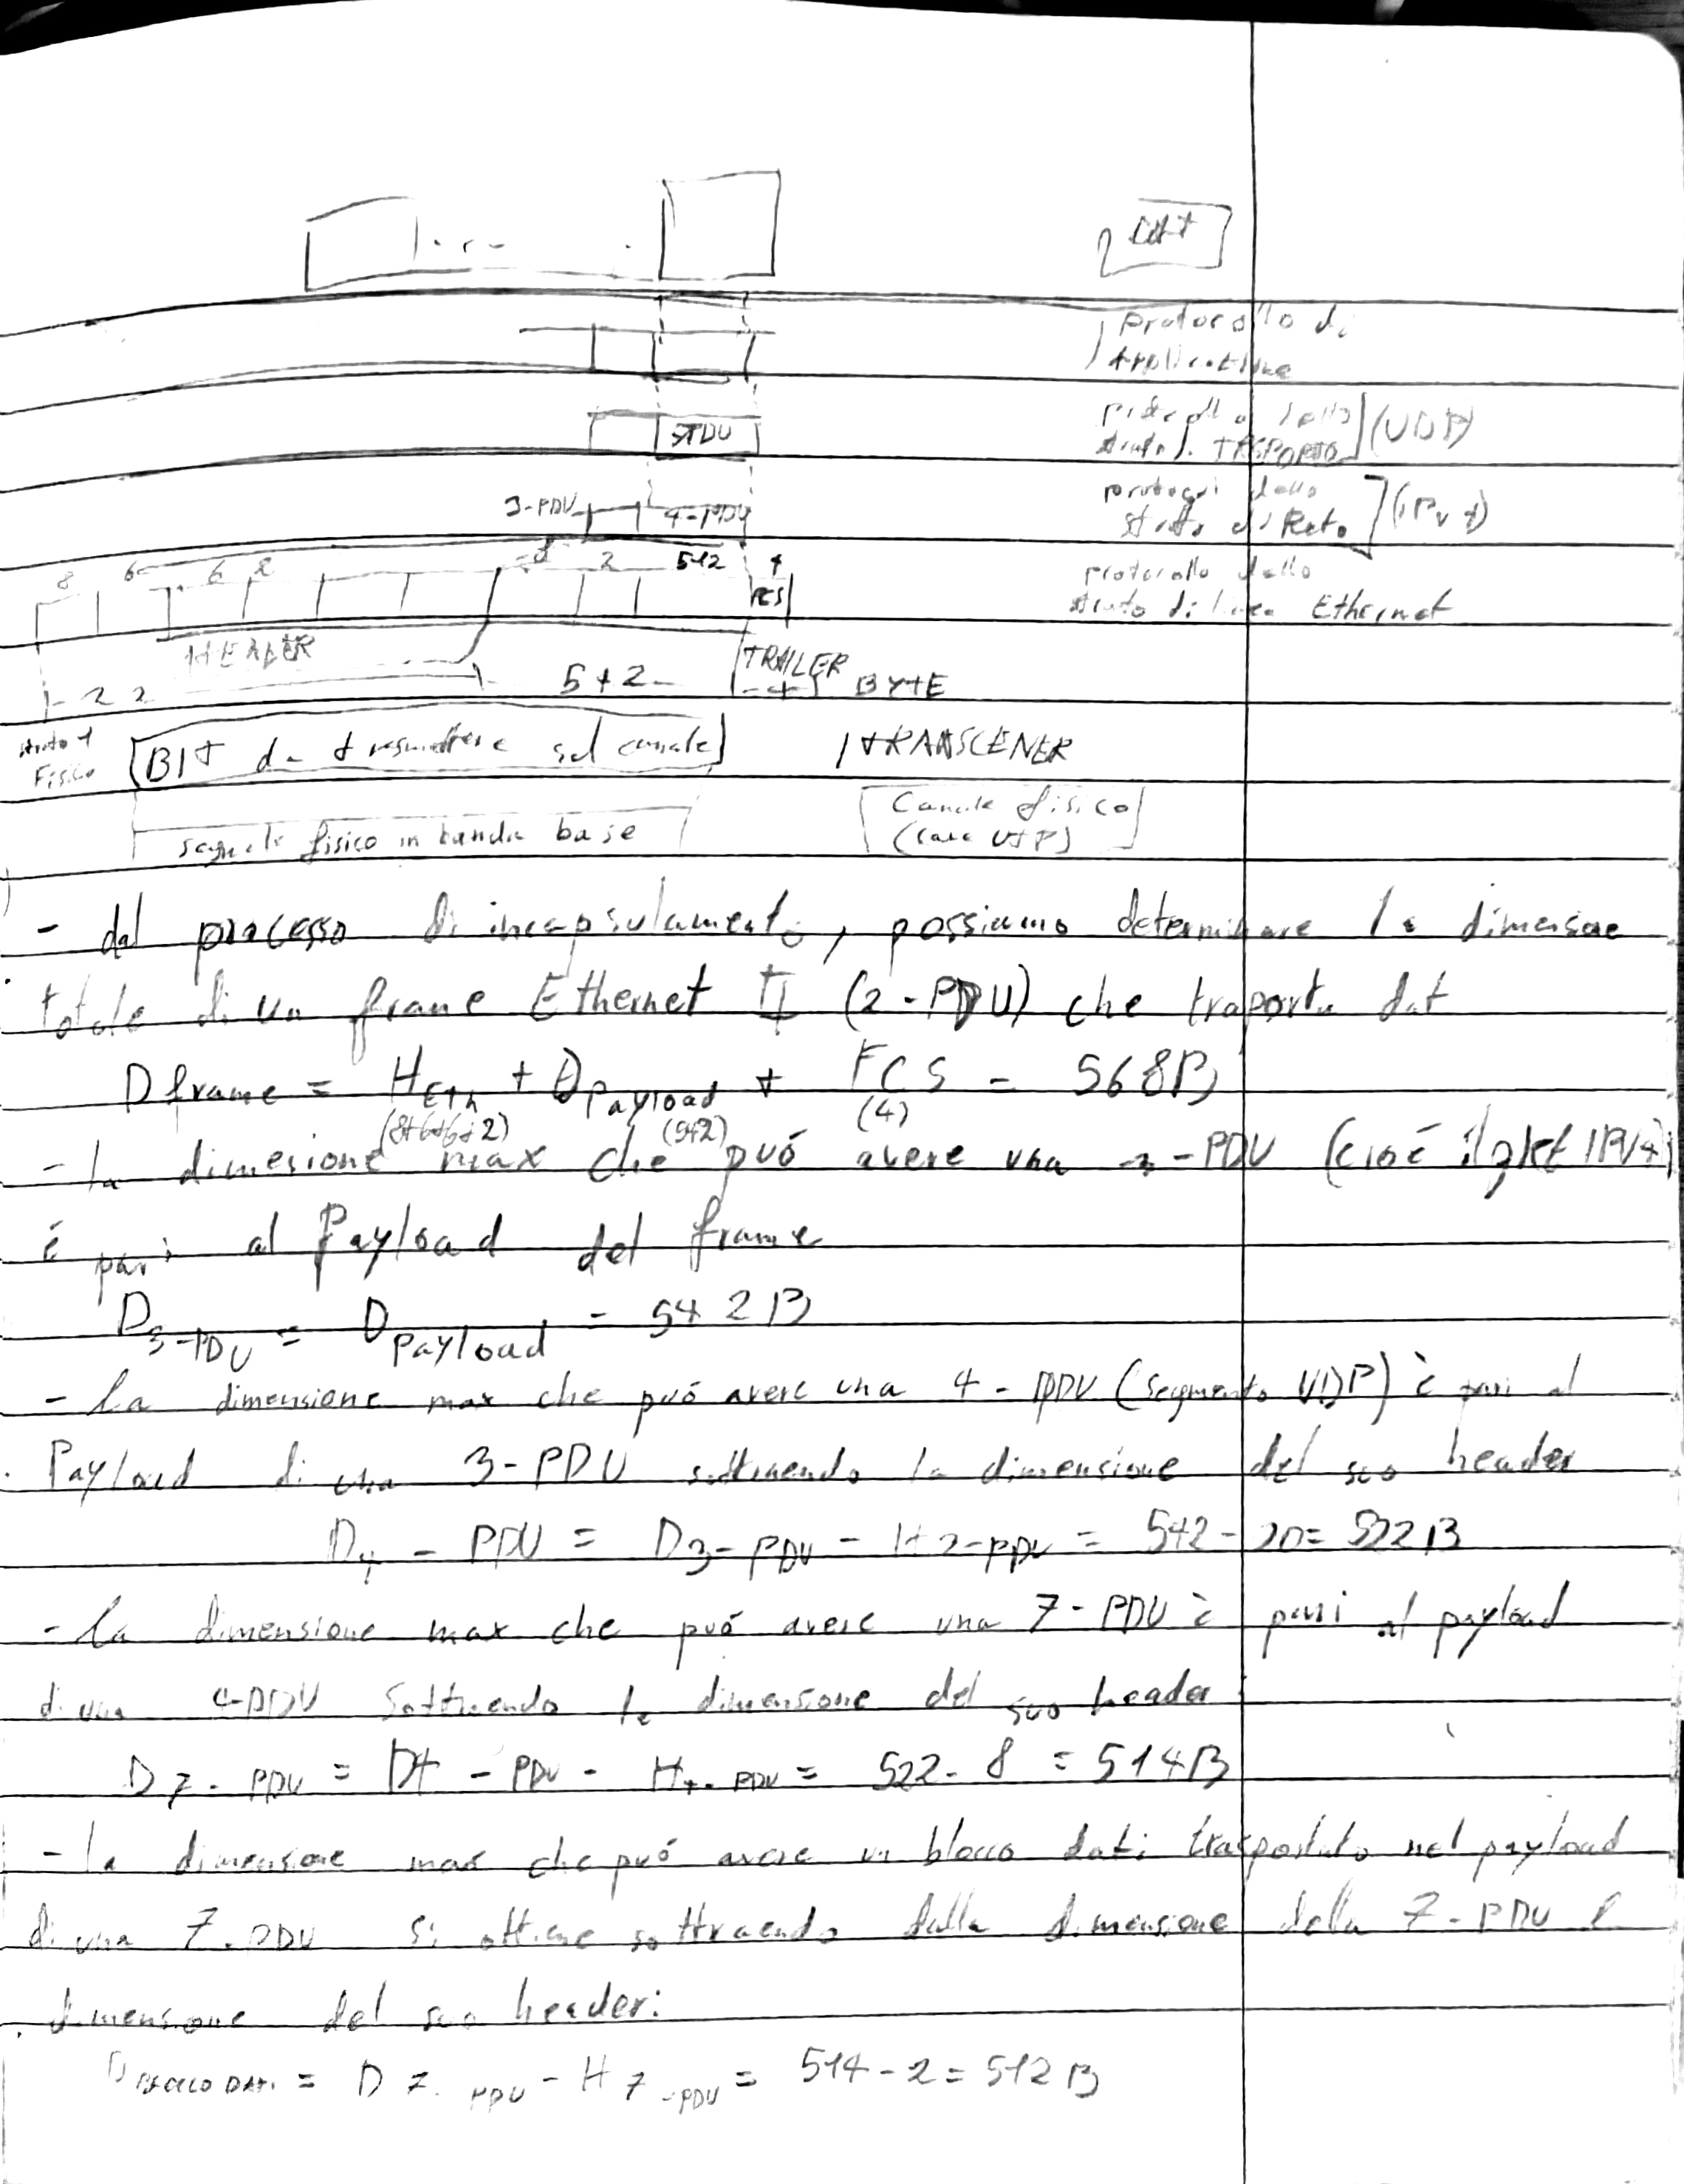 dat
protocollo di
Applicazione
STDU
protocollo dello
strato di TRSPORTO (UDP)
3-PDU 4-PDU
protocolli dello
strato di Rete (IPv4)
8 6 6 2 8 2 512 4
FCS
protocollo dello
strato di linea Ethernet
HEADER
22 542 TRAILER
4 BYTE
strato 1
Fisico
BIT da trasmettere sul canale
TRANSCENER
segnale fisico in banda base
Canale fisico
(cavo UTP)
- dal processo di incapsulamento, possiamo determinare la dimensioe
totale di un frame Ethernet II (2-PDU) che traporta dat
Dframe = HEth + DPayload + FCS = 568B
(8+6+6+2) (542) (4)
- la dimesione max che può avere una 3-PDU (cioè il pkt IPV4)
è pari al Payload del frame
D3-PDU = DPayload = 542B
- la dimensione max che può avere una 4-PDU (segmento UDP) è pari al
Payload di una 3-PDU sottraendo la dimensione del suo header
D4-PDU = D3-PDU - H3-PDU = 542-20= 522B
- la dimensione max che può avere una 7-PDU è pari al payload
di una 4-PDU sottraendo la dimensione del suo header
D7-PDU = D4-PDU - H4-PDU = 522-8 = 514B
- la dimensione max che può avere un blocco dati trasportato nel payload
di una 7-PDU si ottiene sottraendo dalla dimensione della 7-PDU l
dimensione del suo header:
DBLOCCO DATI = D7-PDU - H7-PDU = 514-2=512B